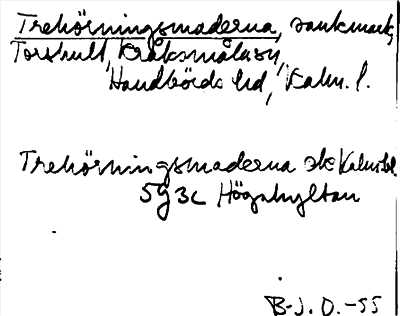 Trehörningsmaderna, sankmark,
Torshult, Kråksmåla sn,
Handbörds hd, Kalm. l.
Trehörningsmaderna ek Kalmar l
5g3c Högahyltan
B-J. O. -55